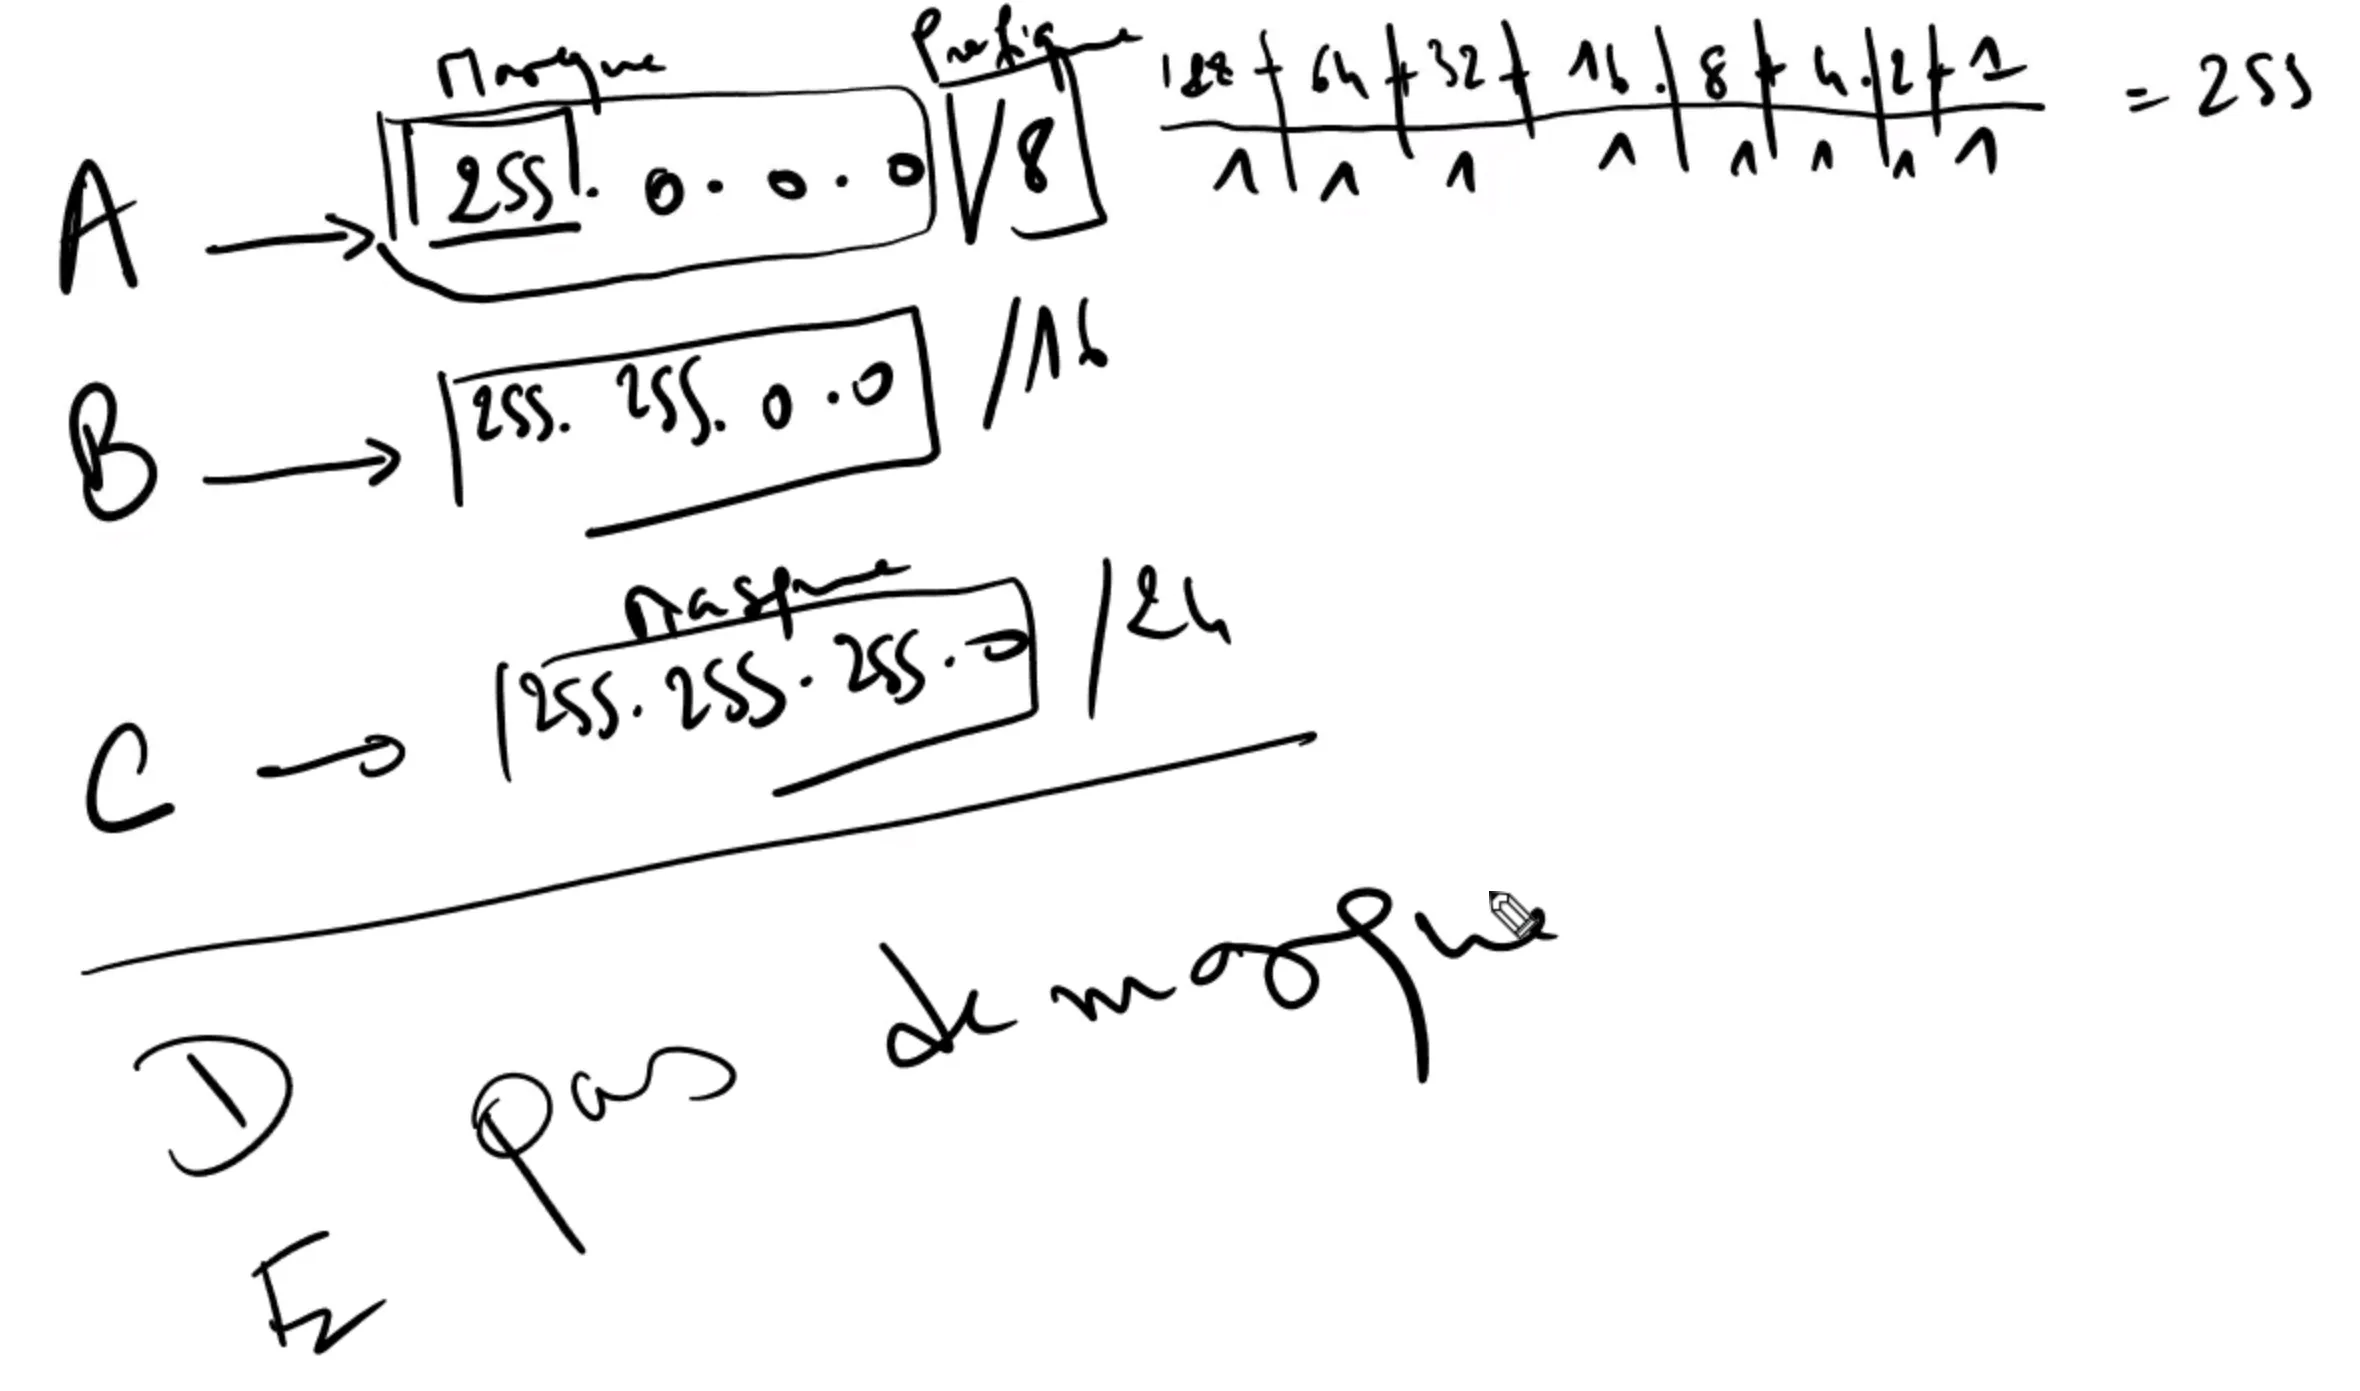 Masque Prefique
128 + 64 + 32 + 16 . 8 + 4 . 2 + 1 = 255
1 1 1 1 1 1 1 1
A → 255. 0. 0. 0 / 8
B → 255. 255. 0. 0 /16
Masque
C → 255. 255. 255. 0 /24
D pas de masque
E